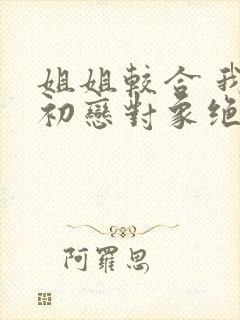 姐姐較合我
初戀對象絕
阿羅思